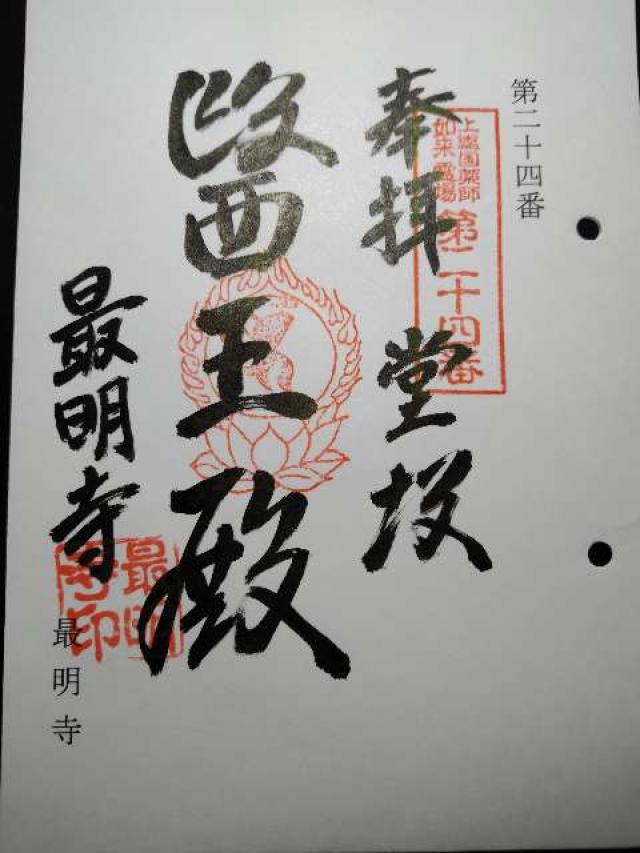 第二十四番
上總国薬師
如来霊場
第二十四番
奉拝 堂坂
醫王殿
最明寺
最明寺印
最明寺